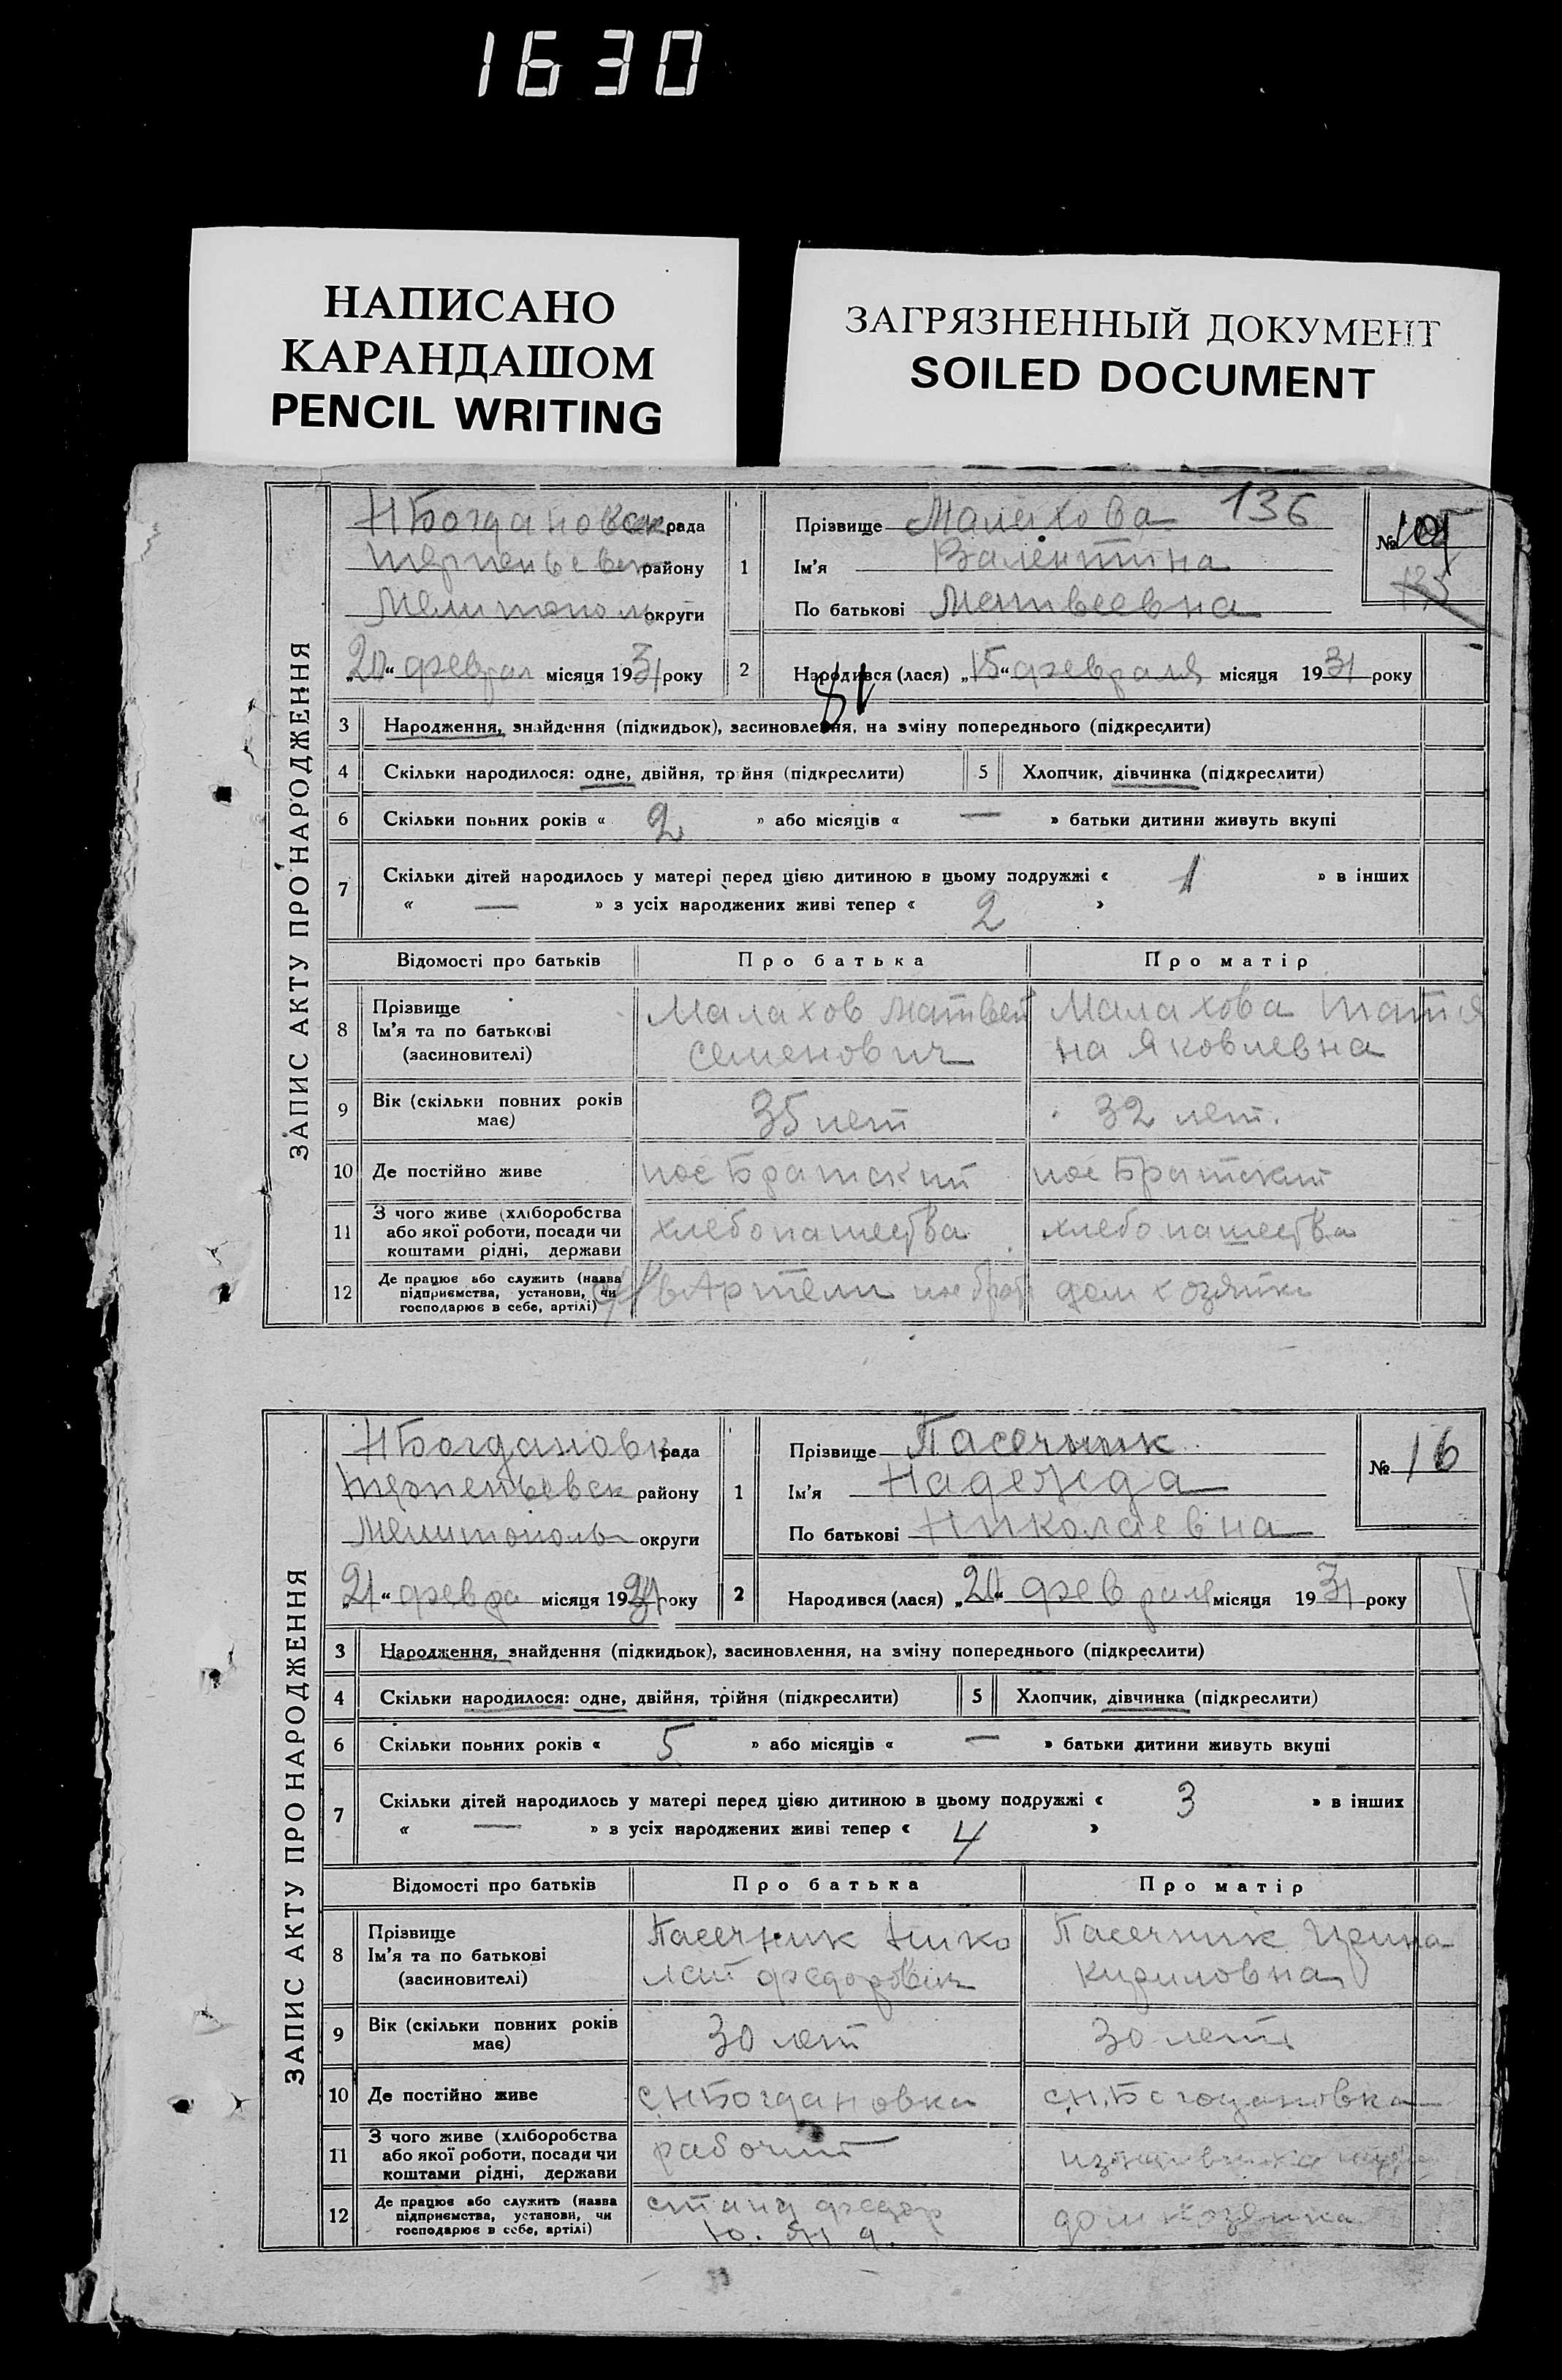 1630
НАПИСАНО
КАРАНДАШОМ
PENCIL WRITING
ЗАГРЯЗНЕННЫЙ ДОКУМЕНТ
SOILED DOCUMENT
ЗАПИС АКТУ ПРО НАРОДЖЕННЯ
НБогдановск рада
Терпеньевск району
Мелитополь округи
„20“ феврал місяця 1931 року
1 Прізвище Малахова 136
Ім'я Валентина
По батькові Матвеевна
№
135
2 Народився (лася) „15“ февраля місяця 1931 року
81
3 Народження, знайдення (підкидьок), засиновлення, на зміну попереднього (підкреслити)
4 Скільки народилося: одне, двійня, трійня (підкреслити) 5 Хлопчик, дівчинка (підкреслити)
6 Скільки повних років « 2 » або місяців « — » батьки дитини живуть вкупі
7 Скільки дітей народилось у матері перед цією дитиною в цьому подружжі « 1 » в інших
« — » з усіх народжених живі тепер « 2 »
Відомості про батьків Про батька Про матір
8 Прізвище
Ім'я та по батькові
(засиновителі)
Малахов Матвей
Семенович
Малахова Татя
на Яковлевна
9 Вік (скільки повних років
має)
35 лет 32 лет.
10 Де постійно живе пос Братский пос Братский
11 З чого живе (хліборобства
або якої роботи, посади чи
коштами рідні, держави
хлебопашества хлебопашества
12 Де працює або служить (назва
підприємства, установи, чи
господарює в себе, артілі)
в Артели пос брат дом хозяйка
ЗАПИС АКТУ ПРО НАРОДЖЕННЯ
НБогдановк рада
Терпеньевск району
Мелитополь округи
„21“ февра місяця 1931 року
1 Прізвище Пасечник
Ім'я Надежда
По батькові Николаевна
№ 16
2 Народився (лася) „20“ февраля місяця 1931 року
3 Народження, знайдення (підкидьок), засиновлення, на зміну попереднього (підкреслити)
4 Скільки народилося: одне, двійня, трійня (підкреслити) 5 Хлопчик, дівчинка (підкреслити)
6 Скільки повних років « 5 » або місяців « — » батьки дитини живуть вкупі
7 Скільки дітей народилось у матері перед цією дитиною в цьому подружжі « 3 » в інших
« — » з усіх народжених живі тепер « 4 »
Відомості про батьків Про батька Про матір
8 Прізвище
Ім'я та по батькові
(засиновителі)
Пасечник Нико
лай федорович
Пасечник Ирина
Кириловна
9 Вік (скільки повних років
має)
30 лет 30 лет
10 Де постійно живе с.НБогдановка с.Н.Богдановка
11 З чого живе (хліборобства
або якої роботи, посади чи
коштами рідні, держави
рабочий
12 Де працює або служить (назва
підприємства, установи, чи
господарює в себе, артілі)
станц федор
дом хозяйка